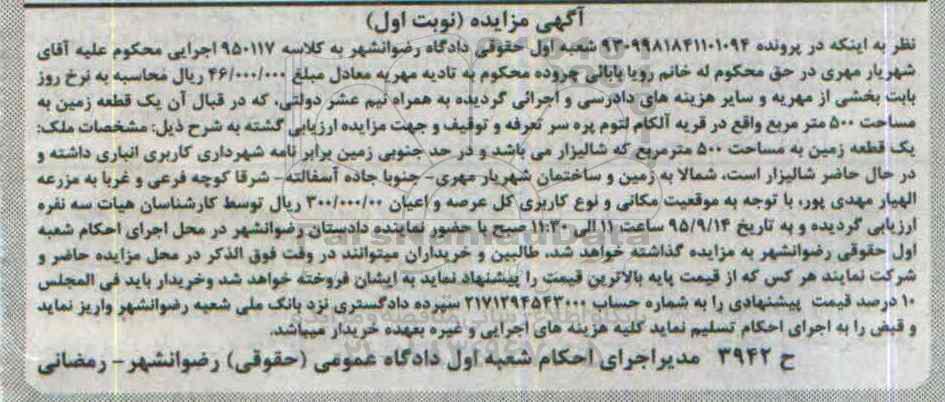 آگهی مزایده (نوبت اول)
نظر به اینکه در پرونده ۹۳۰۹۹۸۱۸۴۱۱۰۱۰۹۴ شعبه اول حقوقی دادگاه رضوانشهر به کلاسه ۹۵۰۱۱۷ اجرایی محکوم علیه آقای
شهریار مهری در حق محکوم له خانم رویا بابائی چروده محکوم به تادیه مهریه معادل مبلغ ۴۶/۰۰۰/۰۰۰ ریال محاسبه به نرخ روز
بابت بخشی از مهریه و سایر هزینه های دادرسی و اجرائی گردیده به همراه نیم عشر دولتی، که در قبال آن یک قطعه زمین به
مساحت ۵۰۰ متر مربع واقع در قریه آلکام لتوم پره سر تعرفه و توقیف و جهت مزایده ارزیابی گشته به شرح ذیل: مشخصات ملک:
یک قطعه زمین به مساحت ۵۰۰ مترمربع که شالیزار می باشد و در حد جنوبی زمین برابر نامه شهرداری کاربری انباری داشته و
در حال حاضر شالیزار است، شمالا به زمین و ساختمان شهریار مهری- جنوبا جاده آسفالته- شرقا کوچه فرعی و غربا به مزرعه
الهیار مهدی پور، با توجه به موقعیت مکانی و نوع کاربری کل عرصه و اعیان ۳۰۰/۰۰۰/۰۰ ریال توسط کارشناسان هیات سه نفره
ارزیابی گردیده و به تاریخ ۹۵/۹/۱۴ ساعت ۱۱ الی ۱۱:۳۰ صبح با حضور نماینده دادستان رضوانشهر در محل اجرای احکام شعبه
اول حقوقی رضوانشهر به مزایده گذاشته خواهد شد. طالبین و خریداران میتوانند در وقت فوق الذکر در محل مزایده حاضر و
شرکت نمایند هر کس که از قیمت پایه بالاترین قیمت را پیشنهاد نماید به ایشان فروخته خواهد شد وخریدار باید فی المجلس
۱۰ درصد قیمت پیشنهادی را به شماره حساب ۲۱۷۱۲۹۴۵۴۳۰۰۰ سپرده دادگستری نزد بانک ملی شعبه رضوانشهر واریز نماید
و قبض را به اجرای احکام تسلیم نماید کلیه هزینه های اجرایی و غیره بعهده خریدار میباشد.
ح ۳۹۴۲ مدیراجرای احکام شعبه اول دادگاه عمومی (حقوقی) رضوانشهر- رمضانی
ParsNamadData